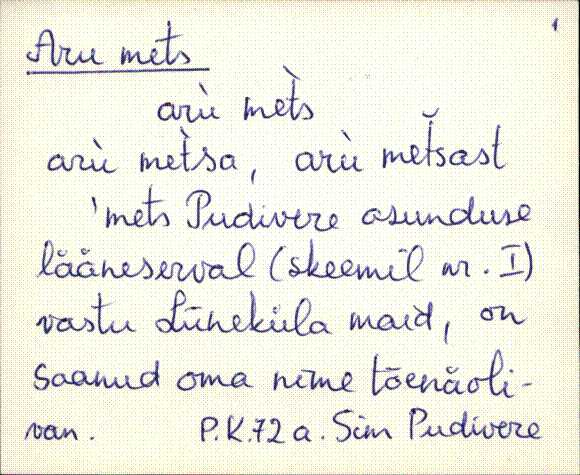 1
Aru mets
arù met̀s
arù met̀sa, arù metsast
'mets Pudivere asunduse
lääneserval (skeemil nr. I)
vastu Lüneküla maid, on
saanud oma nime tõenäoli-
van. P.K.72 a. Sim Pudivere